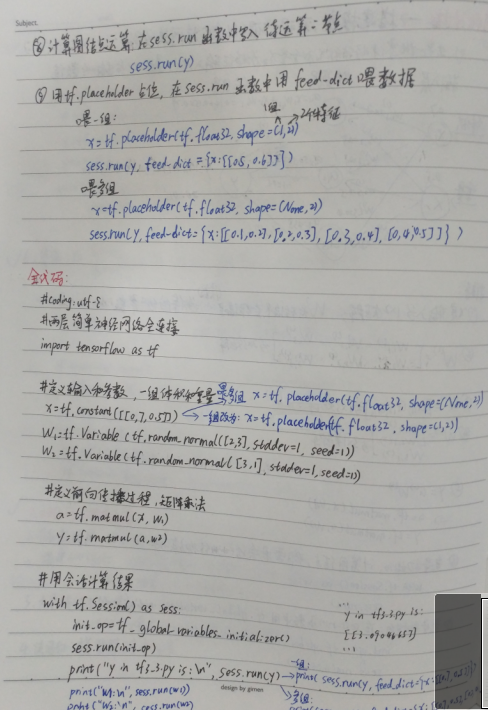 Subject.
④计算图结点运算:在sess.run函数中写入待运算节点
sess.run(y)
⑤用tf.placeholder占位,在sess.run函数中用feed-dict喂数据
喂一组: 1组
x=tf.placeholder(tf.float32, shape=(1,2)) →2个特征
sess.run(y, feed-dict={x:[[0.5,0.6]]})
喂多组
x=tf.placeholder(tf.float32, shape=(None,2))
sess.run(y, feed-dict={x:[[0.1,0.2],[0.2,0.3],[0.3,0.4],[0.4,0.5]]})
全代码:
#coding:utf-8
#两层简单神经网络全连接
import tensorflow as tf
#定义输入和参数,一组体积和重量 喂多组 x=tf.placeholder(tf.float32, shape=(None,2))
x=tf.constant([[0.7,0.5]]) 一组改为: x=tf.placeholder(tf.float32, shape=(1,2))
W1=tf.Variable(tf.random_normal([2,3],stddev=1,seed=1))
W2=tf.Variable(tf.random_normal([3,1],stddev=1,seed=1))
#定义前向传播过程,矩阵乘法
a=tf.matmul(x,w1)
y=tf.matmul(a,w2)
#用会话计算结果
with tf.Session() as sess:
init_op=tf_global_variables_initializer()
sess.run(init_op)
print("y in tf3.3.py is:\n", sess.run(y)
print("w1:\n", sess.run(w1)
print("w2:\n", sess.run(w2)
...
y in tf3.3.py is:
[[3.0904665]]
...
一组:
print(sess.run(y, feed_dict={x:
多组:
design by gonen